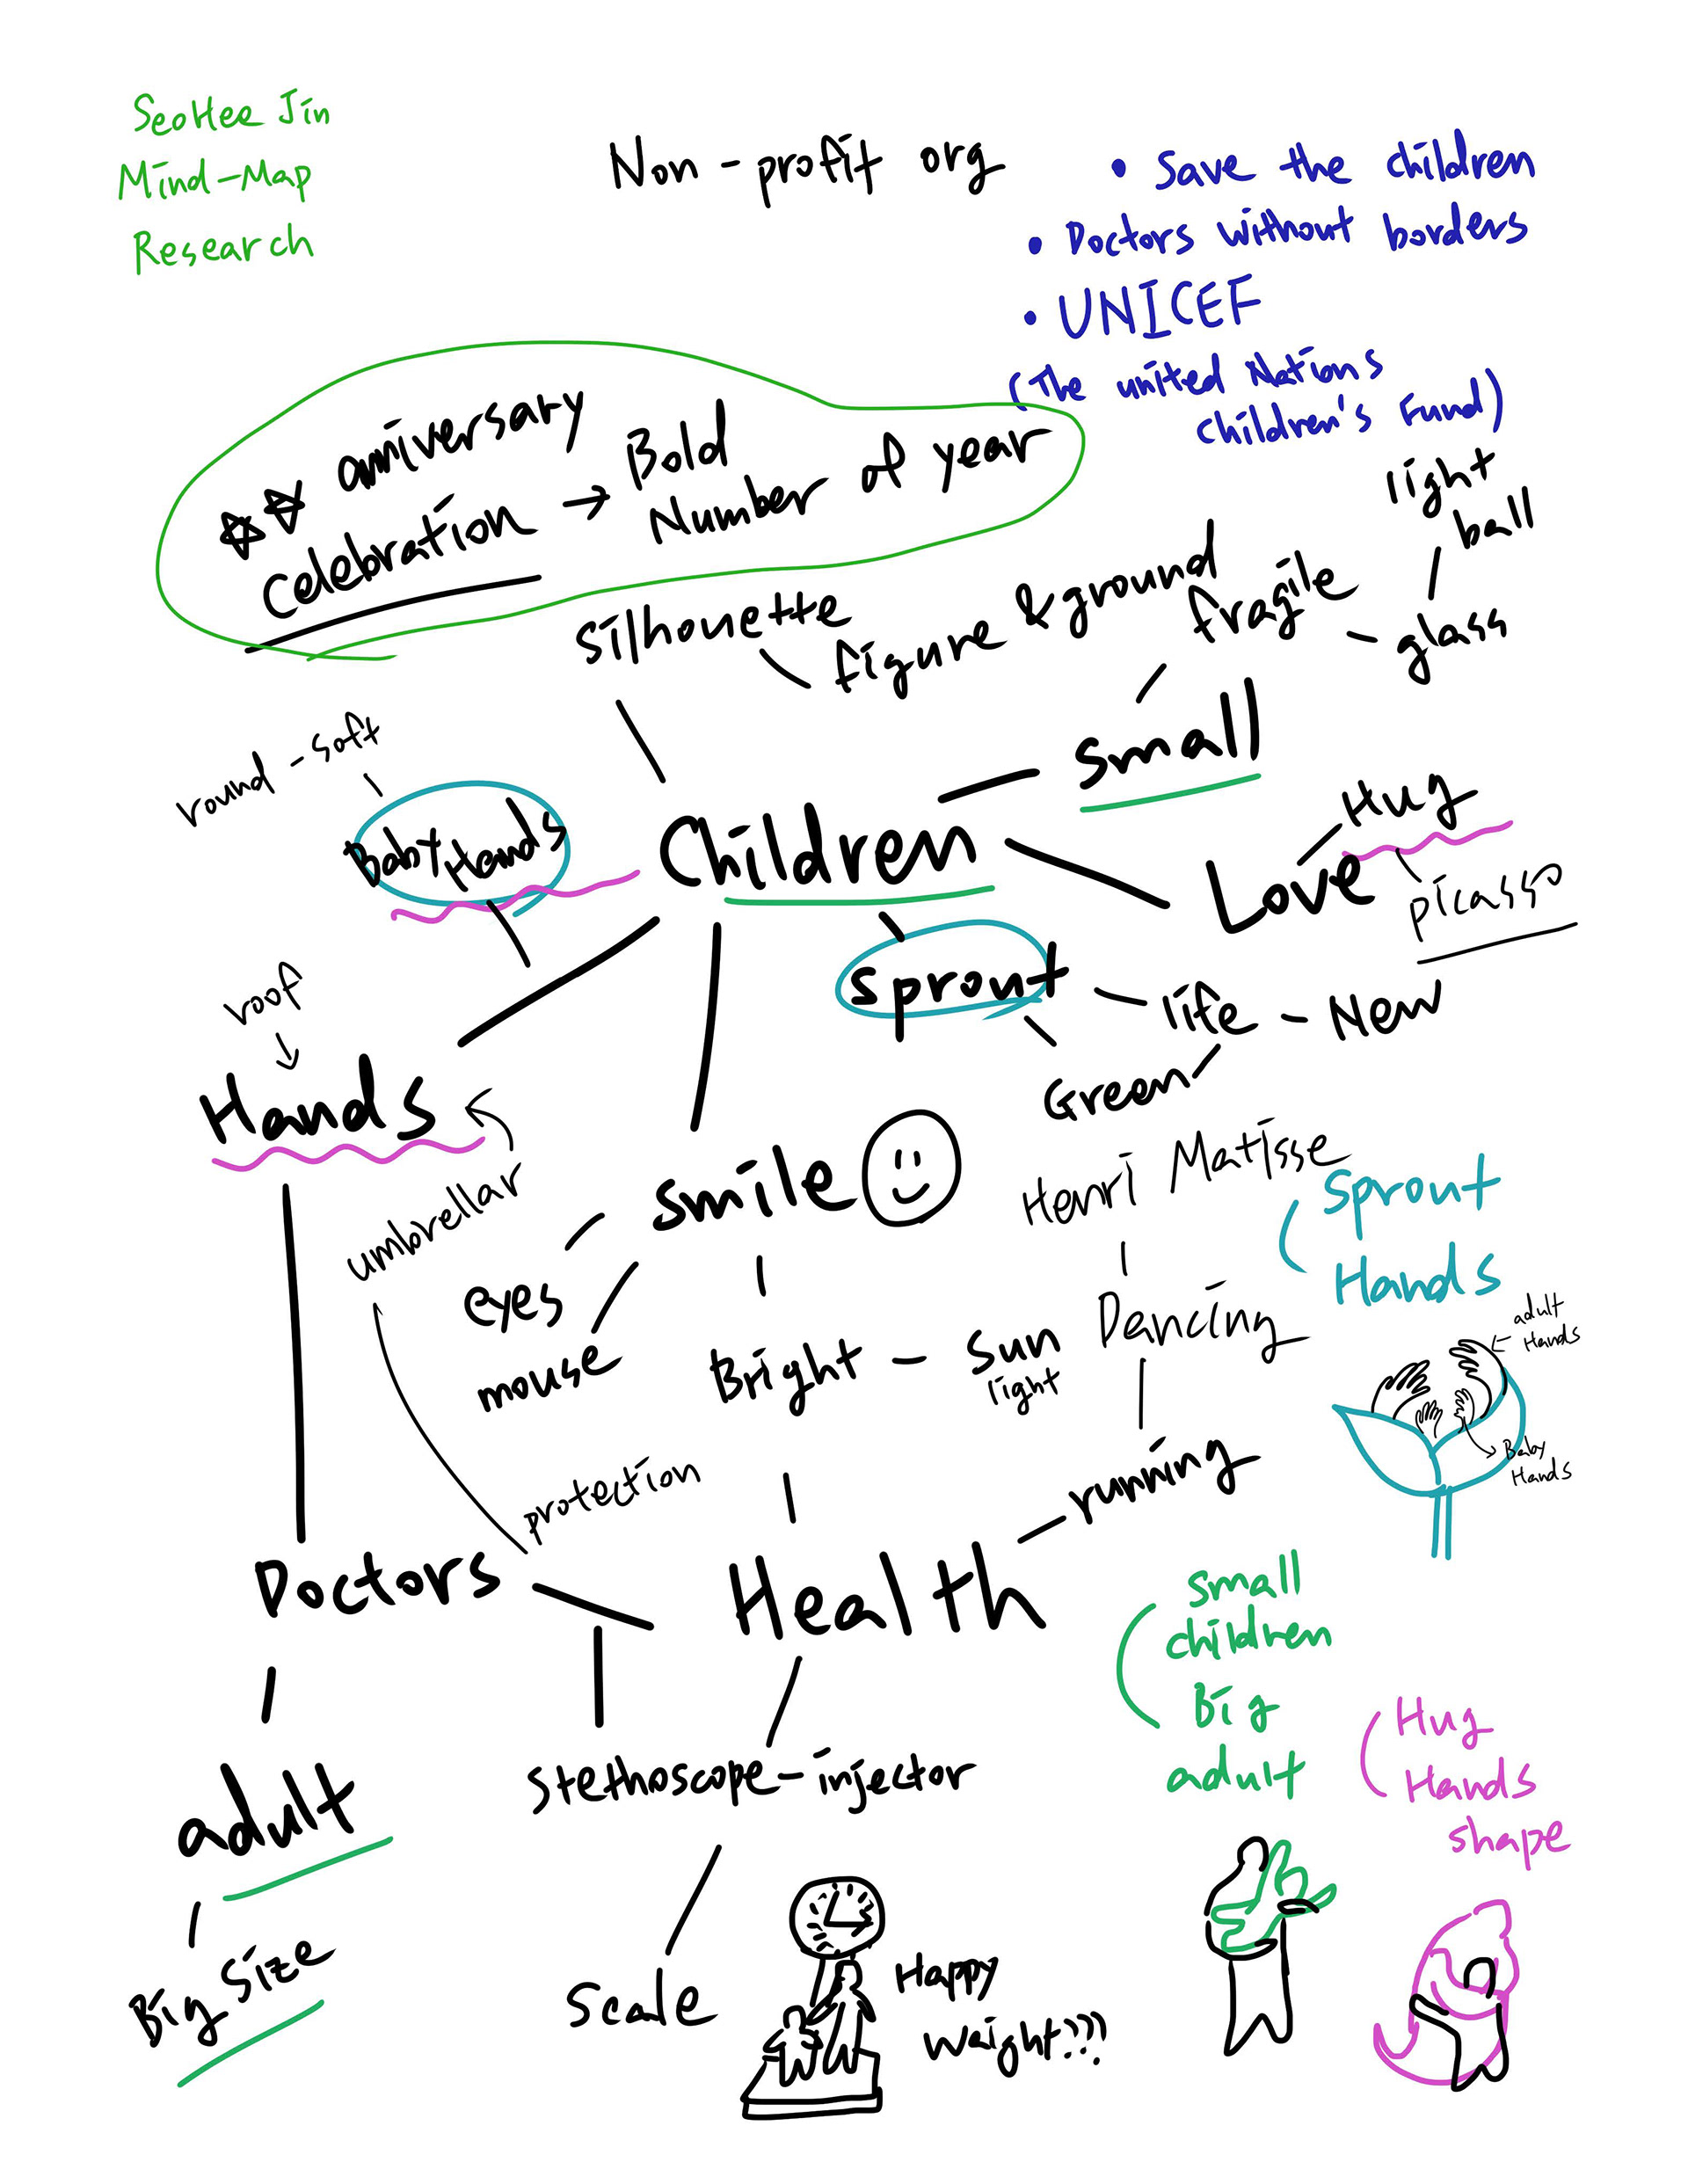 SeoHee Jin
Mind-Map
Research
Non-profit org
• Save the children
• Doctors without borders
• UNICEF
(The united Nations
children's Fund)
anniversary
celebration → Bold
Number of year
silhouette
figure & ground
fragile
glass
light
ball
small
round - soft
Baby Hands
Children
Love
Hug
picasso
sprout
life - New
Green
roof
Hands
umbrellar
smile
eyes
mouse
Bright - sun
light
Henri Matisse
Dancing
running
sprout
Hands
adult
Hands
Baby
Hands
protection
Doctors
Health
stethoscope-injector
adult
Big size
scale
Happy
weight???
small
children
Big
adult
Hug
Hands
shape